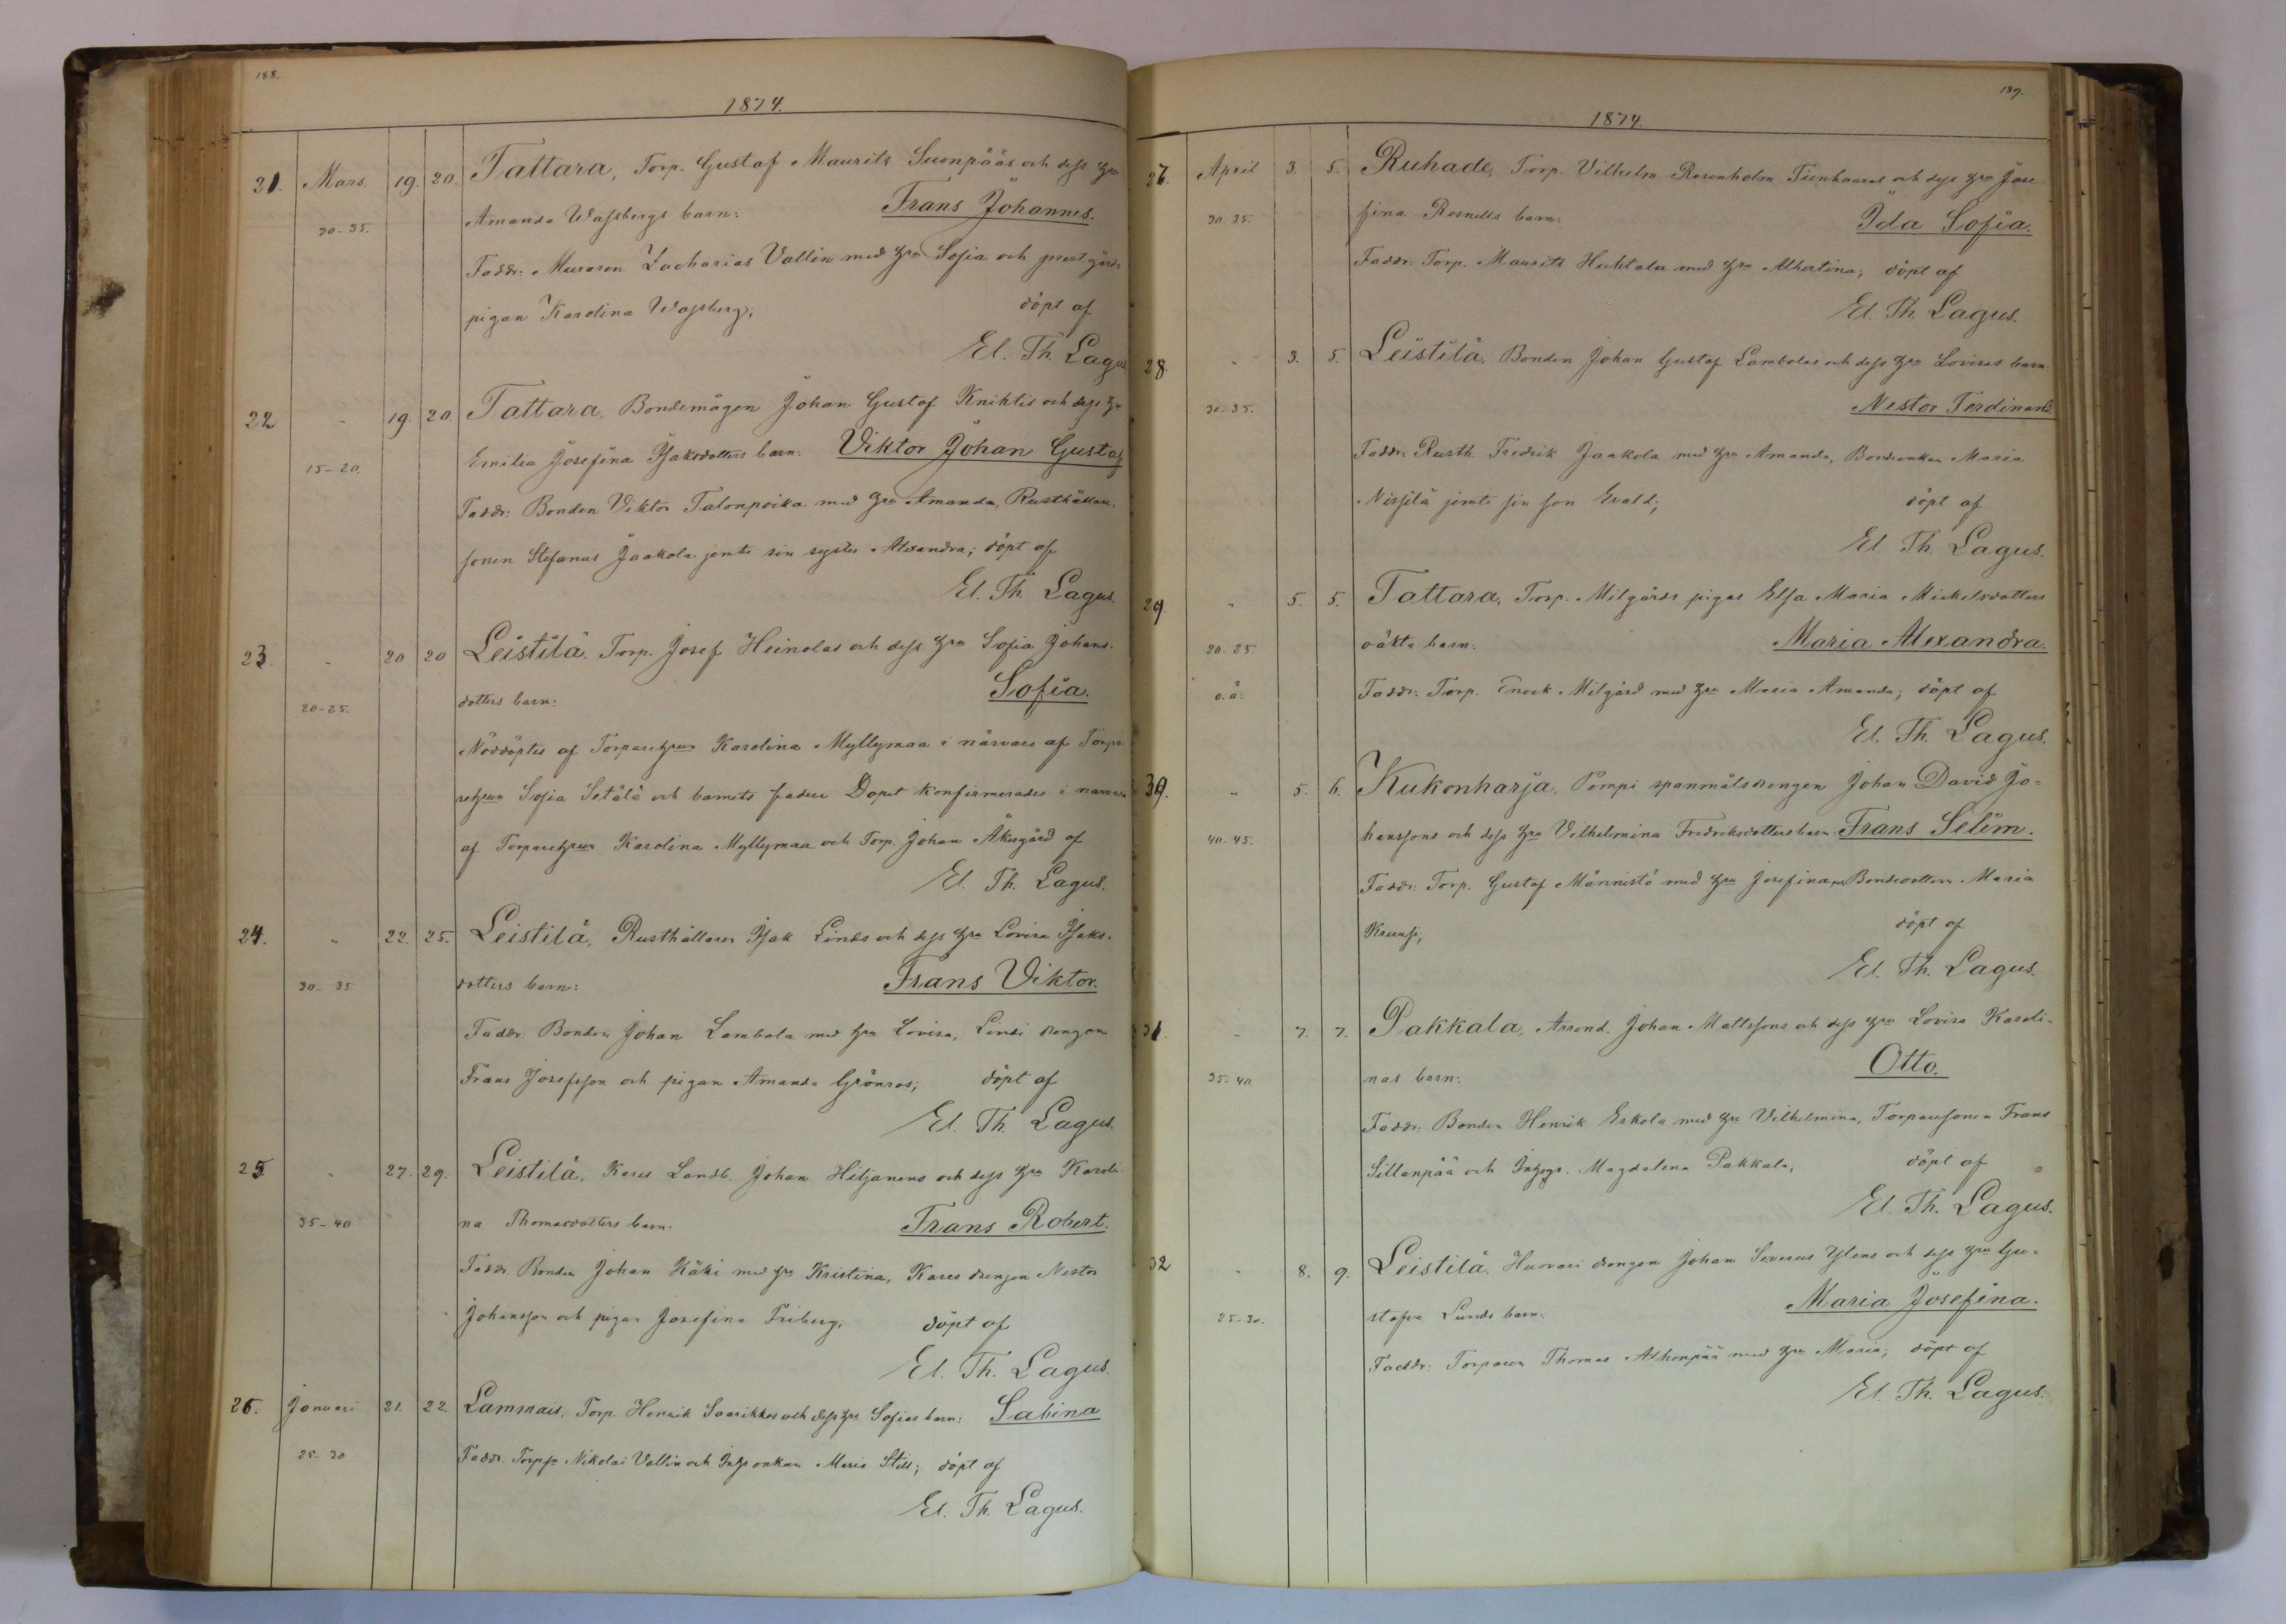 188.
1874.
21. Mars. 19. 20. Tattara, Torp. Gustaf Maurits Suonpääs och dess hru
30-35. Amanda Wassbergs barn: Frans Johannes.
Faddr: Muraren Zacharias Vallin med hru Sofia och prestgårds
pigan Karolina Wassberg; döpt af
El. Th. Lagus
22 " 19. 20. Tattara, Bondemågen Johan Gustaf Knihtis och dess hru
15-20. Emilia Josefina Isaksdotters barn: Viktor Johan Gustaf
Faddr: Bonden Viktor Talonpoika med hru Amanda, Rusthållare-
sonen Stefanus Jaakola jemte sin syster Alexandra; döpt af
El. Th. Lagus.
23. " 20 20 Leistilä, Torp. Josef Heinolas och dess hru Sofia Johans-
20-25. dotters barn: Sofia.
Nöddöptes af Torparehrun Karolina Myllymaa i närvaro af Torpa-
rehrun Sofia Setälä och barnets fader Dopet konfirmerades i närvaro
af Torparehrun Karolina Myllymaa och Torp. Johan Åkergård af
El. Th. Lagus.
24. " 22. 25. Leistilä, Rusthållaren Isak Linds och dess hru Lovisa Isaks-
30-35. dotters barn: Frans Viktor.
Faddr: Bonden Johan Lambola med hru Lovisa, Lindi drengen
Frans Josefsson och pigan Amanda Grönros; döpt af
El. Th. Lagus.
25 " 27. 29. Leistilä, Kares Landb. Johan Hiljanens och dess hru Karoli-
35-40 na Thomasdotters barn: Frans Robert.
Faddr. Bonden Johan Käki med hru Kristina, Kares drengen Nestor
Johansson och pigan Josefina Friberg; döpt af
El. Th. Lagus.
26. Januari 21. 22. Lammais, Torp. Henrik Saarikkos och dess hru Sofias barn: Sabina
25-30 Faddr. Nikolai Vallin och enkan Maria Still; döpt af
El. Th. Lagus.
189.
1874.
27. April 3. 5. Ruhade, Torp. Vilhelm Rosenholm Tienhaaras och dess hru Jose-
30-35. fina Rosnells barn: Ida Sofia.
Faddr: Torp. Maurits Huhtala med hru Albertina; döpt af
El. Th. Lagus.
28. " 3. 5. Leistilä, Bonden Johan Gustaf Lambolas och dess hru Lovisas barn:
30-35. Nestor Ferdinand.
Faddr: Rusth. Fredrik Jaakola med hru Amanda, Bondeenkan Maria
Nissilä jemte sin son Evald; döpt af
El. Th. Lagus.
29 " 5. 5. Tattara, Torp. Milgårds pigas Elsa Maria Mickelsdotters
20-25. oäkta barn: Maria Alexandra.
o.ä. Faddr: Torp. Enock Milgård med hru Maria Amanda; döpt af
El. Th. Lagus.
30. " 5. 6. Kukonharja, Pempi spanmålsdrengen Johan David Jo-
40-45. hanssons och dess hru Vilhelmina Fredriksdotters barn: Frans Selim.
Faddr: Torp. Gustaf Männistö med hru Josefina, Bondedottern Maria
döpt af
El. Th. Lagus.
31. " 7. 7. Pakkala, Arrend. Johan Mattssons och dess hru Lovisa Karoli-
35-40. nas barn: Otto.
Faddr: Bonden Henrik Eskola med hru Vilhelmina, Torparesonen Frans
Sillanpää och Magdalena Pakkala; döpt af
El. Th. Lagus.
32 " 8. 9. Leistilä, Huovari drengen Johan Severus Ylens och dess hru Gu-
25-30. stafva Lunds barn: Maria Josefina.
Faddr: Torparen Thomas Alhonpää med hru Maria; döpt af
El. Th. Lagus.